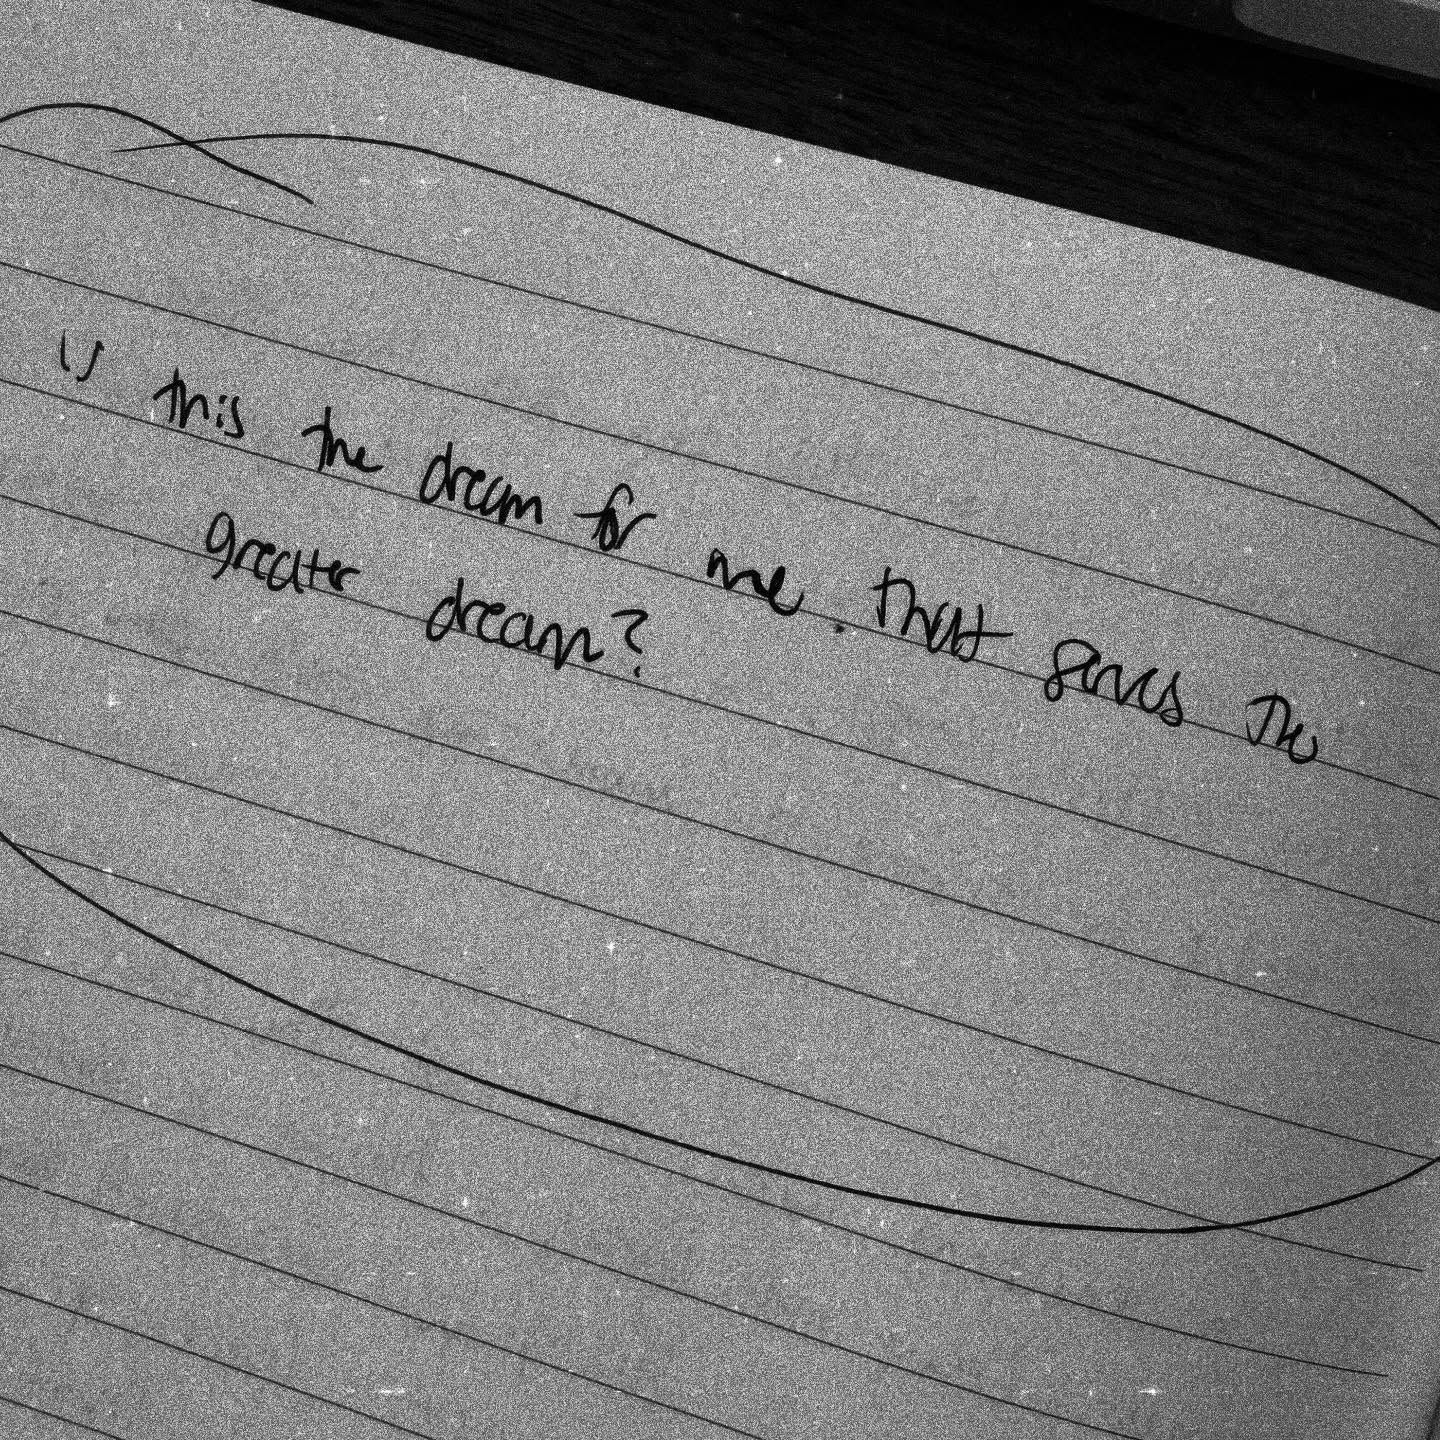 is this the dream for me that serves the
greater dream?